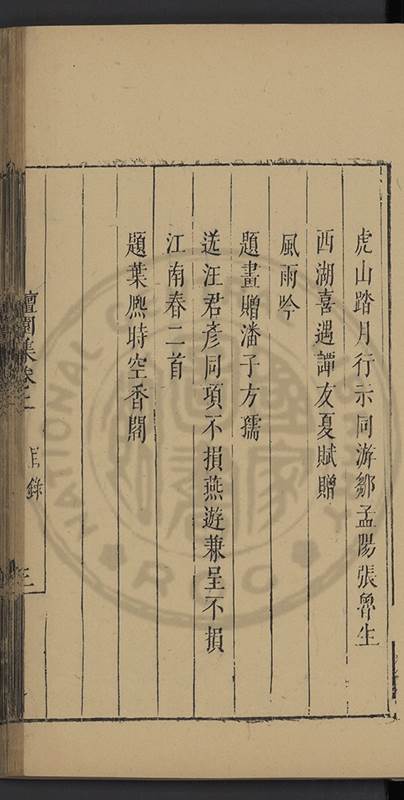 虎山踏月行示同游鄒孟陽張魯生
西湖喜遇譚友夏賦贈
風雨吟
題畫贈潘子方孺
送汪君彥同項不損燕遊兼呈不損
江南春二首
題葉熈時空香閣
檀園集卷二
目錄
三